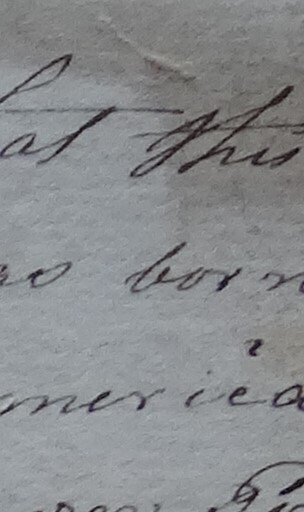 hat this
as born
merica